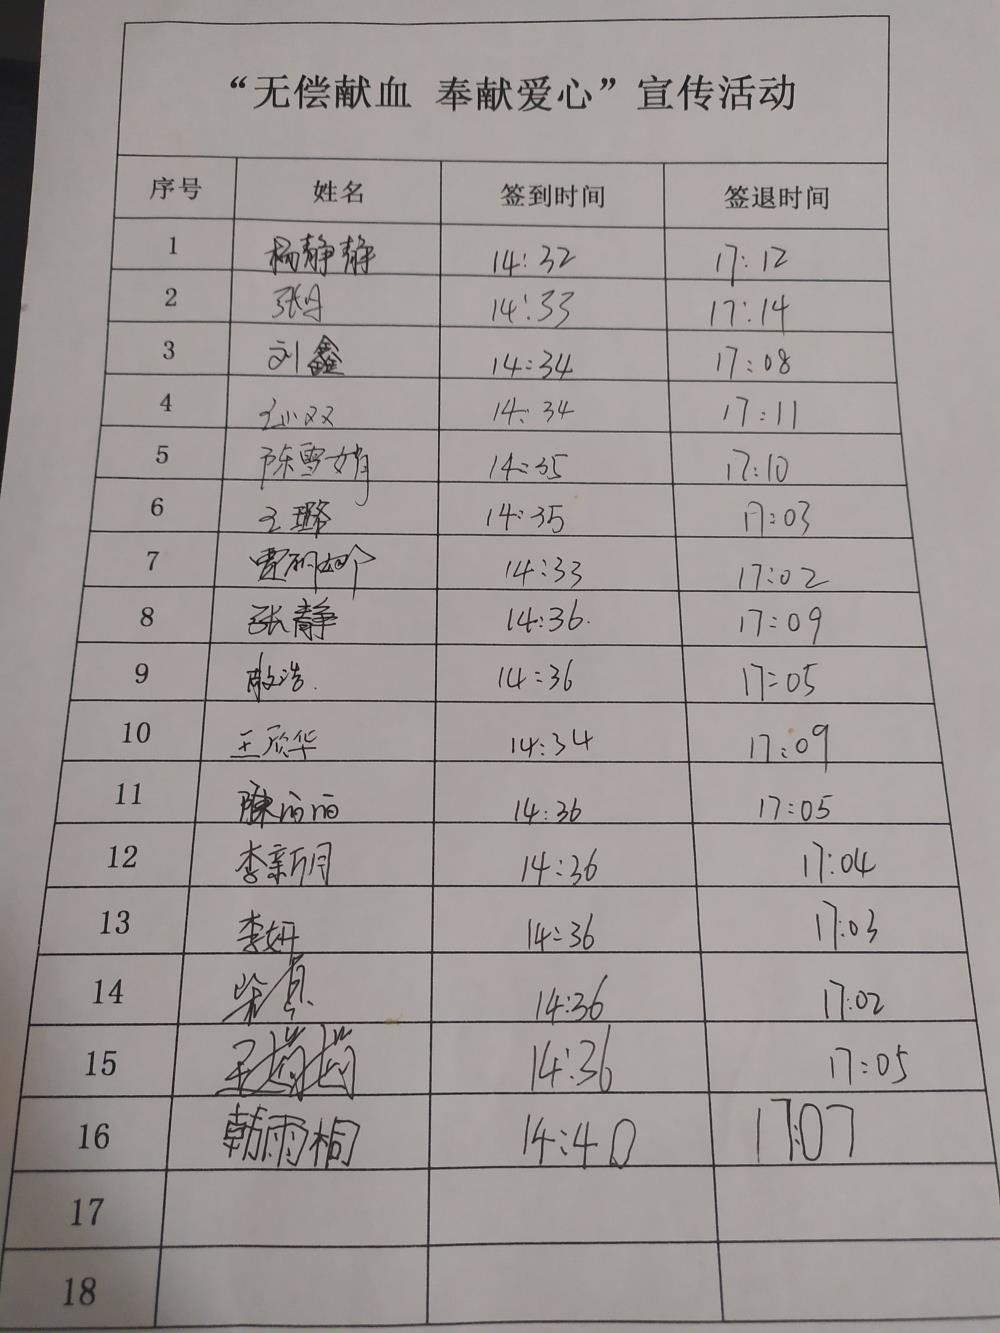 “无偿献血 奉献爱心”宣传活动
序号 姓名 签到时间 签退时间
1 杨静静 14:32 17:12
2 张丹 14:33 17:14
3 刘鑫 14:34 17:08
4 14:34 17:11
5 陈雪娟 14:35 17:10
6 王璐 14:35 17:03
7 14:33 17:02
8 张静 14:36. 17:09
9 14:36 17:05
10 王欣华 14:34 17:09
11 陈丽丽 14:36 17:05
12 李新月 14:36 17:04
13 李妍 14:36 17:03
14 14:36 17:02
15 14:36 17:05
16 韩雨桐 14:40 17:07
17
18